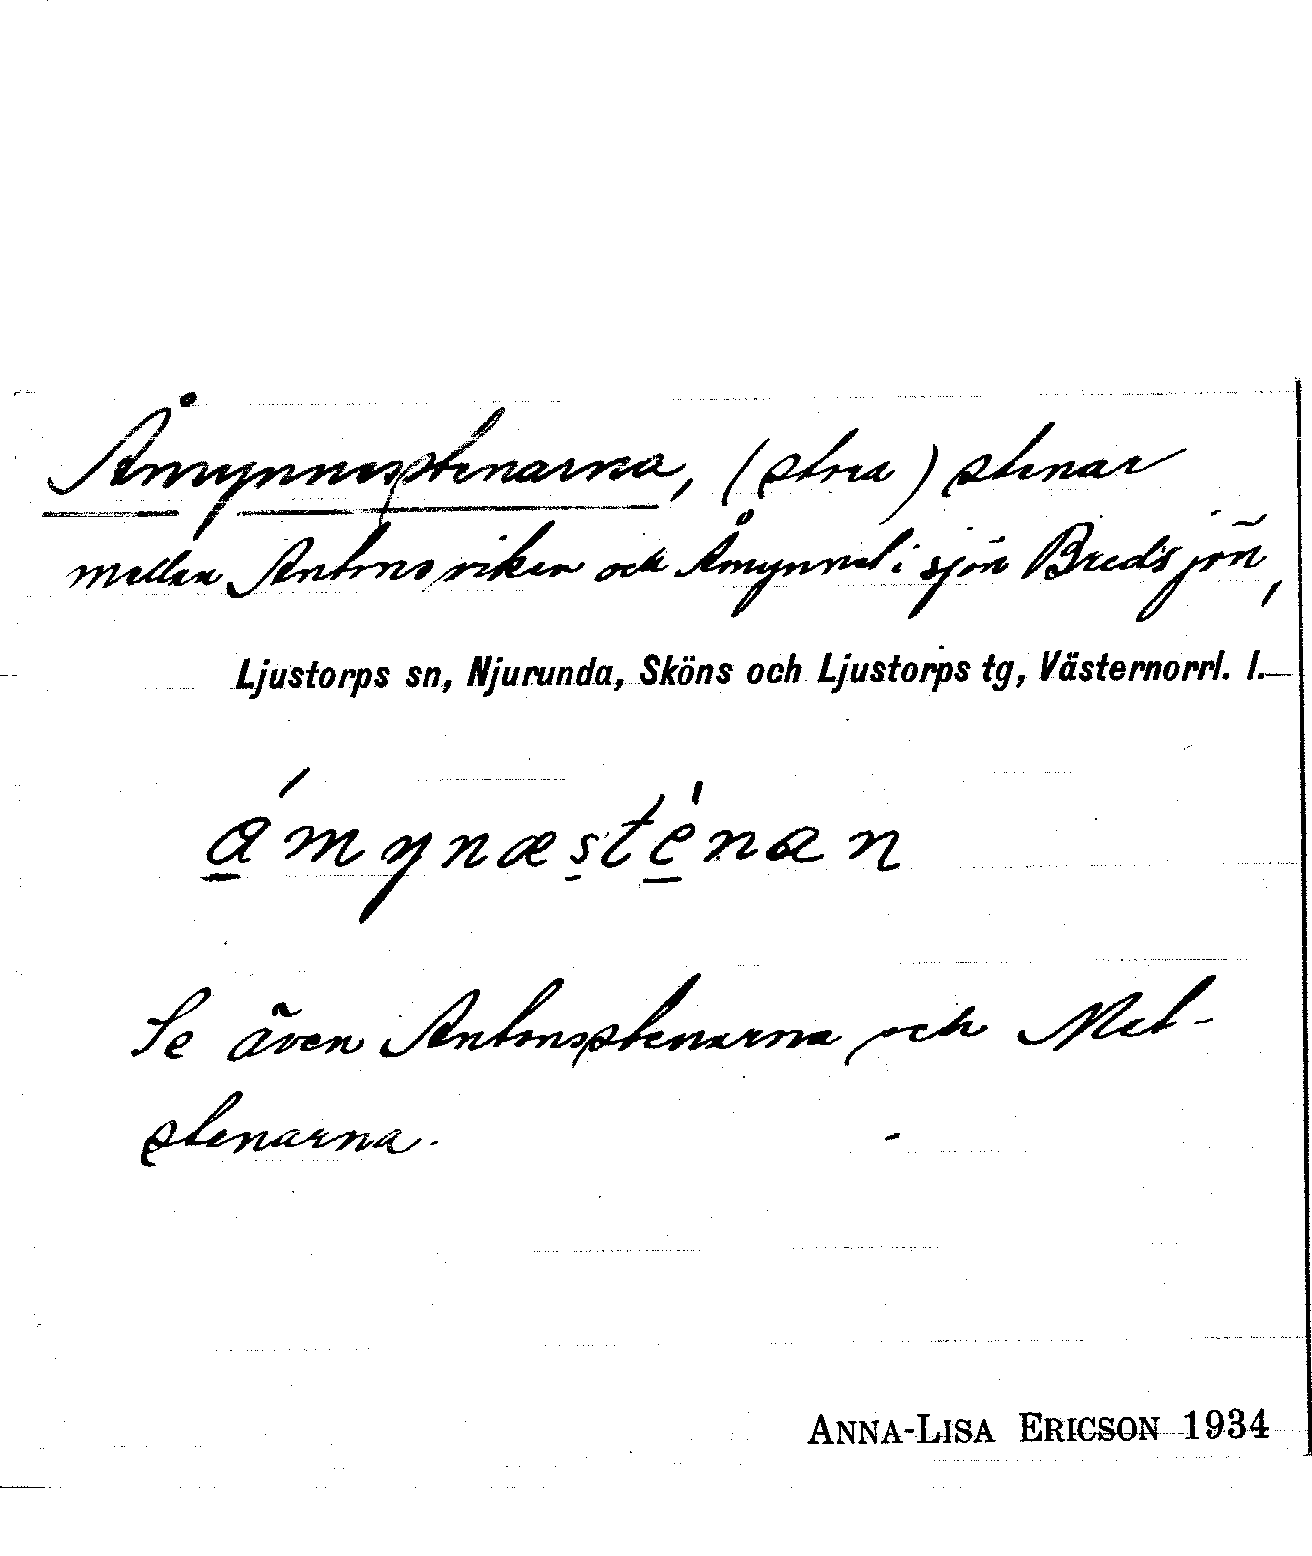 Åmynnesstenarna, (stora) stenar
mellan Antonsviken och Åmynnet i sjön Bredsjön,
Ljustorps sn, Njurunda, Sköns och Ljustorps tg, Västernorrl. l.
á̲mynæṣte̲̍nan
Se även Antonsstenarna och Met-
stenarna.
ANNA-LISA ERICSON 1934